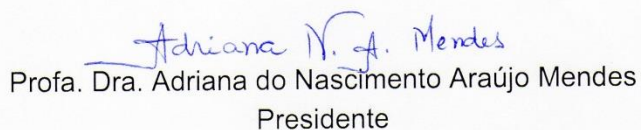 Adriana N. A. Mendes
Profa. Dra. Adriana do Nascimento Araújo Mendes
Presidente